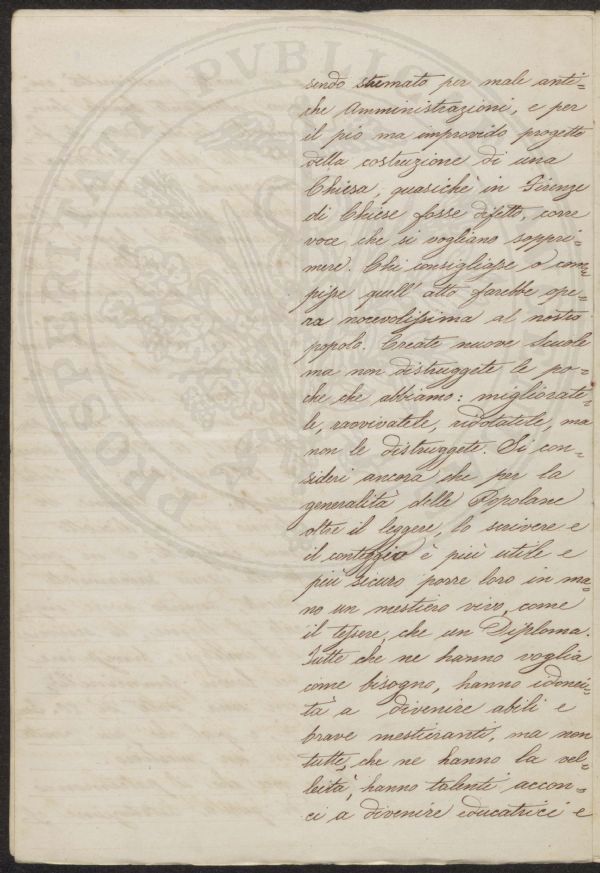 sendo stremato per male anti=
che Amministrazioni, e per
il pio ma improvido progetto
della costruzione di una
Chiesa, quasichè in Firenze
di Chiese fosse difetto, corre
voce che si vogliano soppri=
mere. Chi consigliasse o com=
pisse quell' atto farebbe ope=
ra nocevolissima al nostro
popolo. Create nuove Scuole
ma non distruggete le po=
che che abbiamo: migliorate=
le, ravvivatele, ridotatele, ma
non le distruggete. Si con=
sideri ancora che per la
generalità delle Popolane
oltre il leggere, lo scrivere e
il conteggio è più utile e
più sicuro porre loro in ma=
no un mestiero vivo, come
il tessere, che un Diploma.
Tutte che ne hanno voglia
come bisogno, hanno idonei=
tà a divenire abili e
brave mestieranti, ma non
tutte, che ne hanno la vel=
leità, hanno talenti accon=
ci a divenire educatrici e
PROSPURITATI PVBLICAE